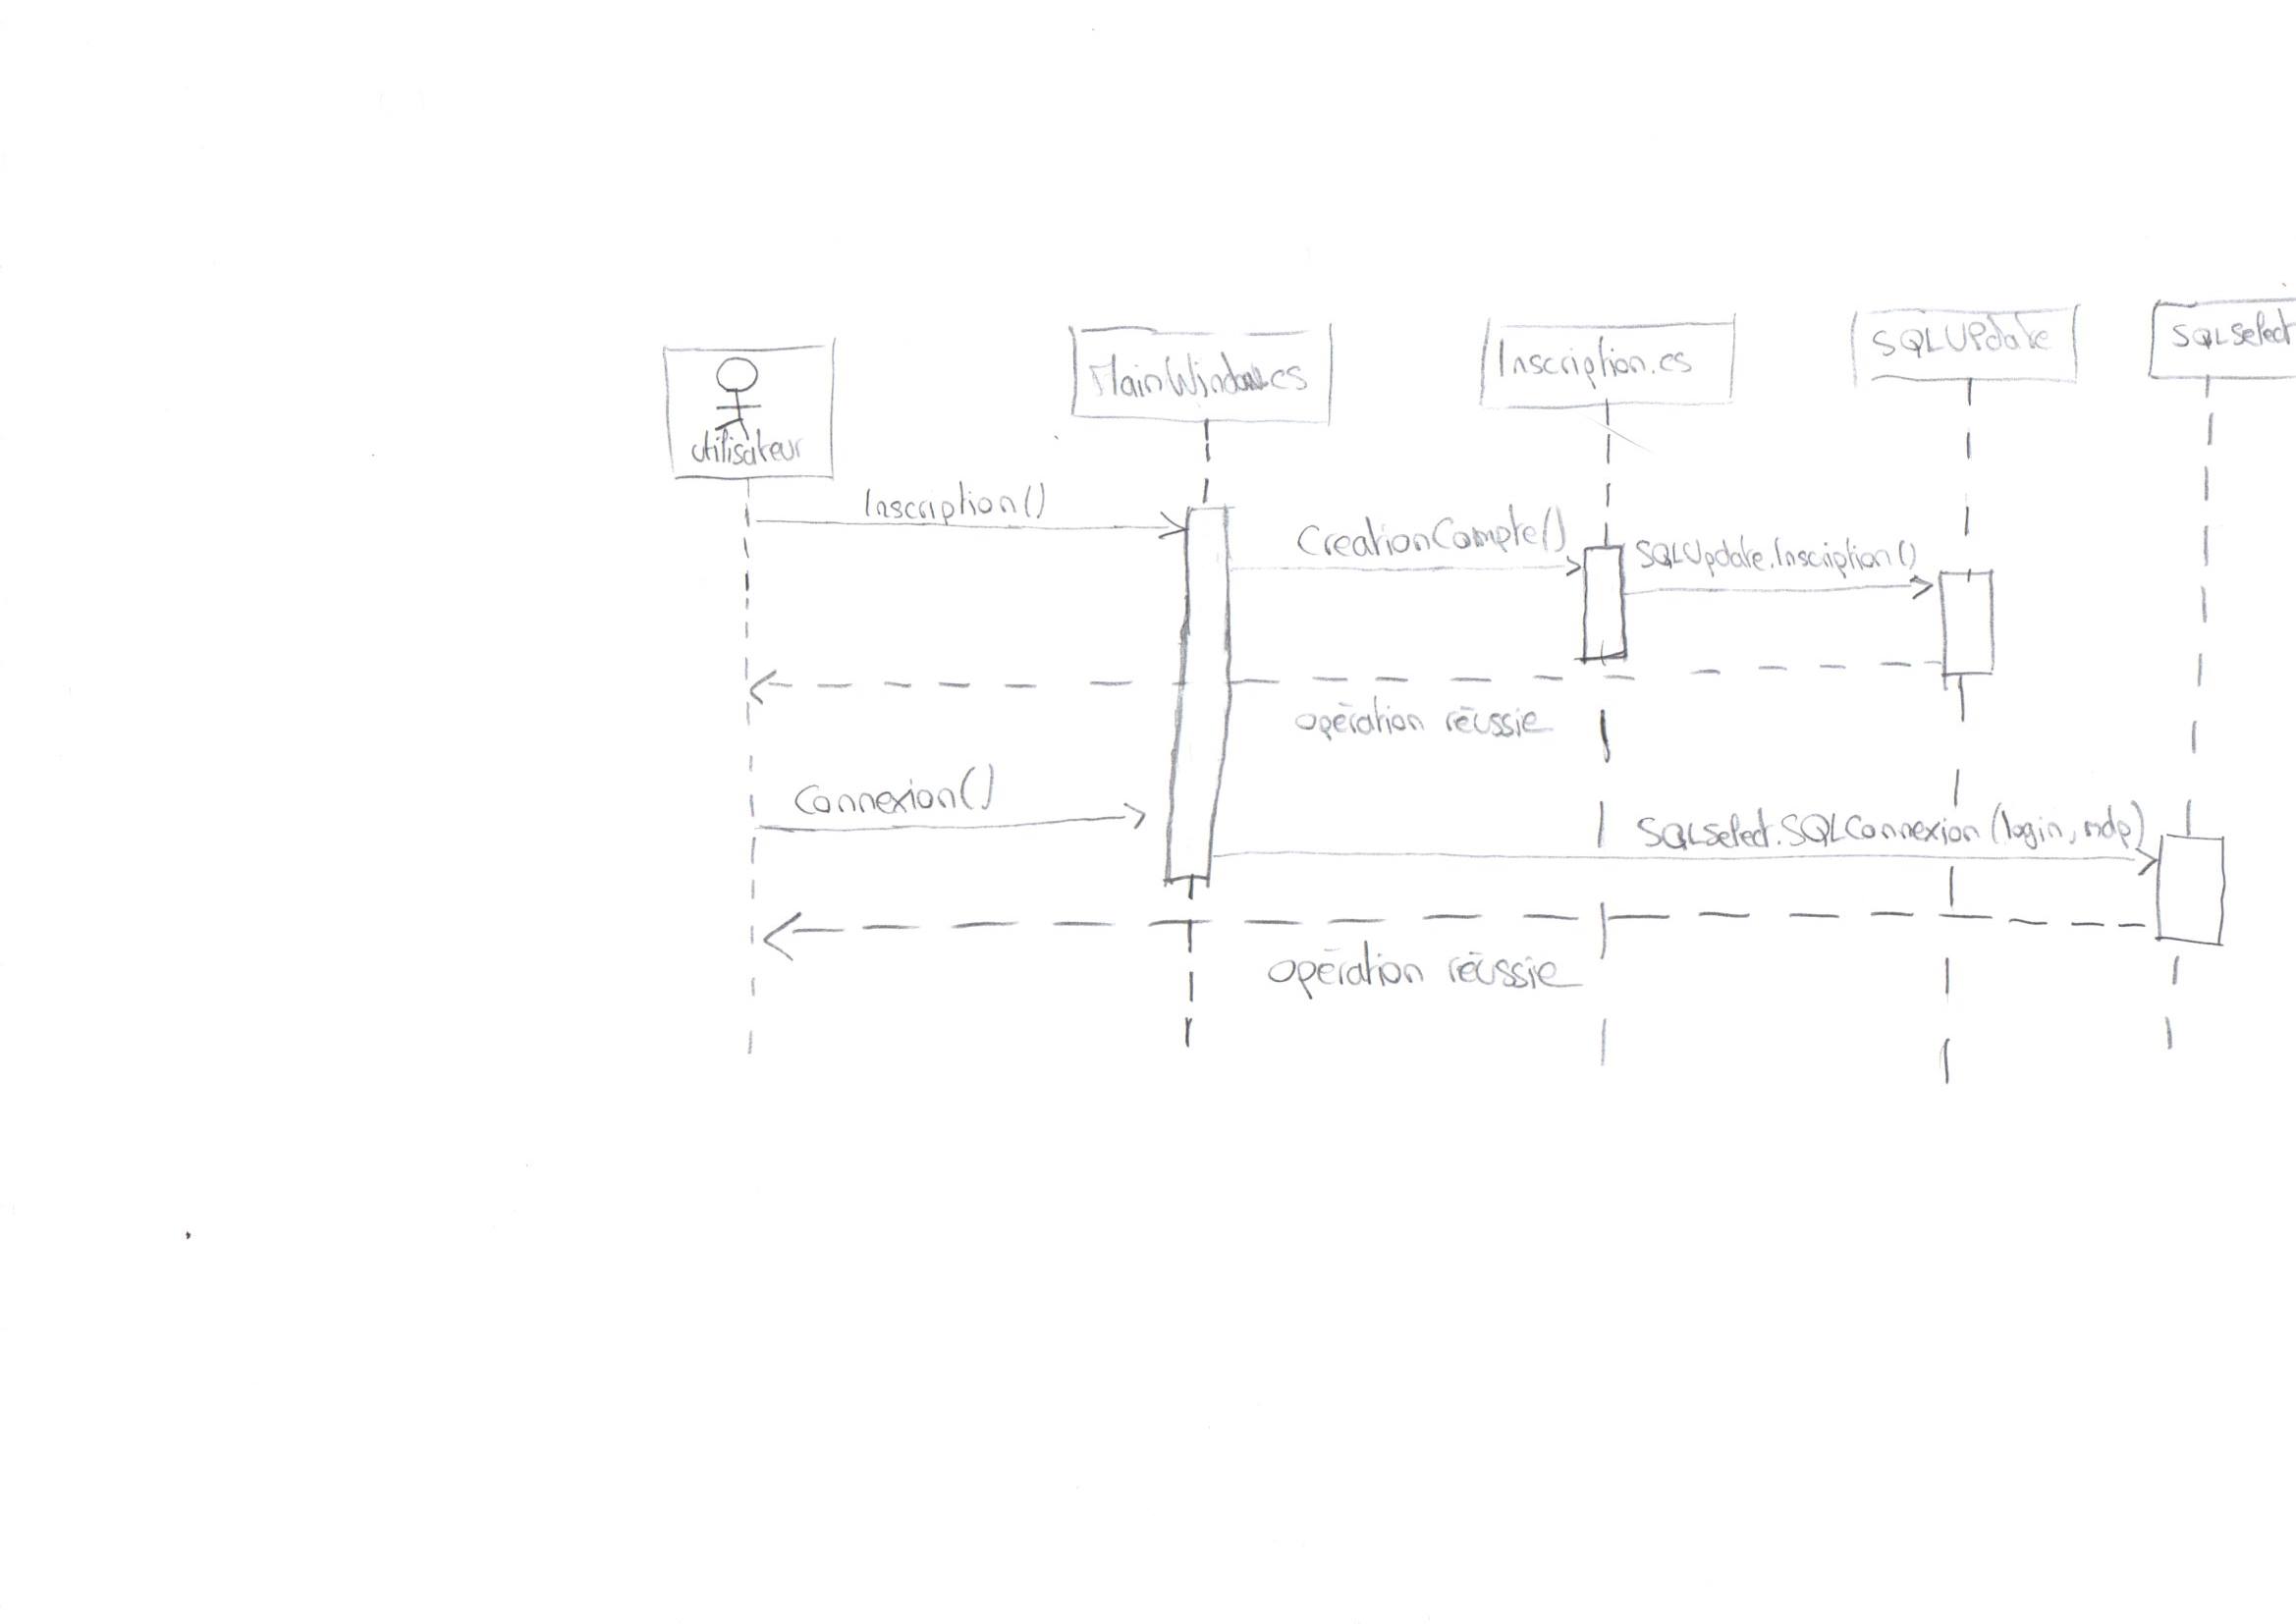 utilisateur
MainWindow.cs
Inscription.cs
SQLUPdate
SQLSelect
Inscription()
CreationCompte()
SQLUpdate.Inscription()
opération réussie
Connexion()
SQLSelect.SQLConnexion (login, mdp)
opération réussie